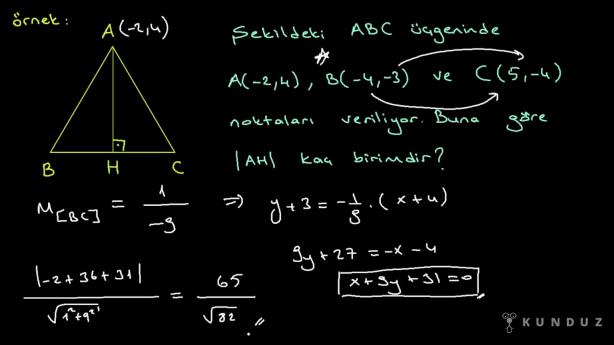 örnek:
A(-2,4)
Şekildeki ABC üçgeninde
A(-2,4), B(-4,-3) ve C(5,-4)
noktaları veriliyor. Buna göre
|AH| kaç birimdir?
B H C
M[BC] = 1/-9 ⇒ y+3 = -1/9 . (x+4)
9y+27 = -x-4
x+9y+31=0
|-2+36+31| / √1²+9² = 65/√82 //
KUNDUZ